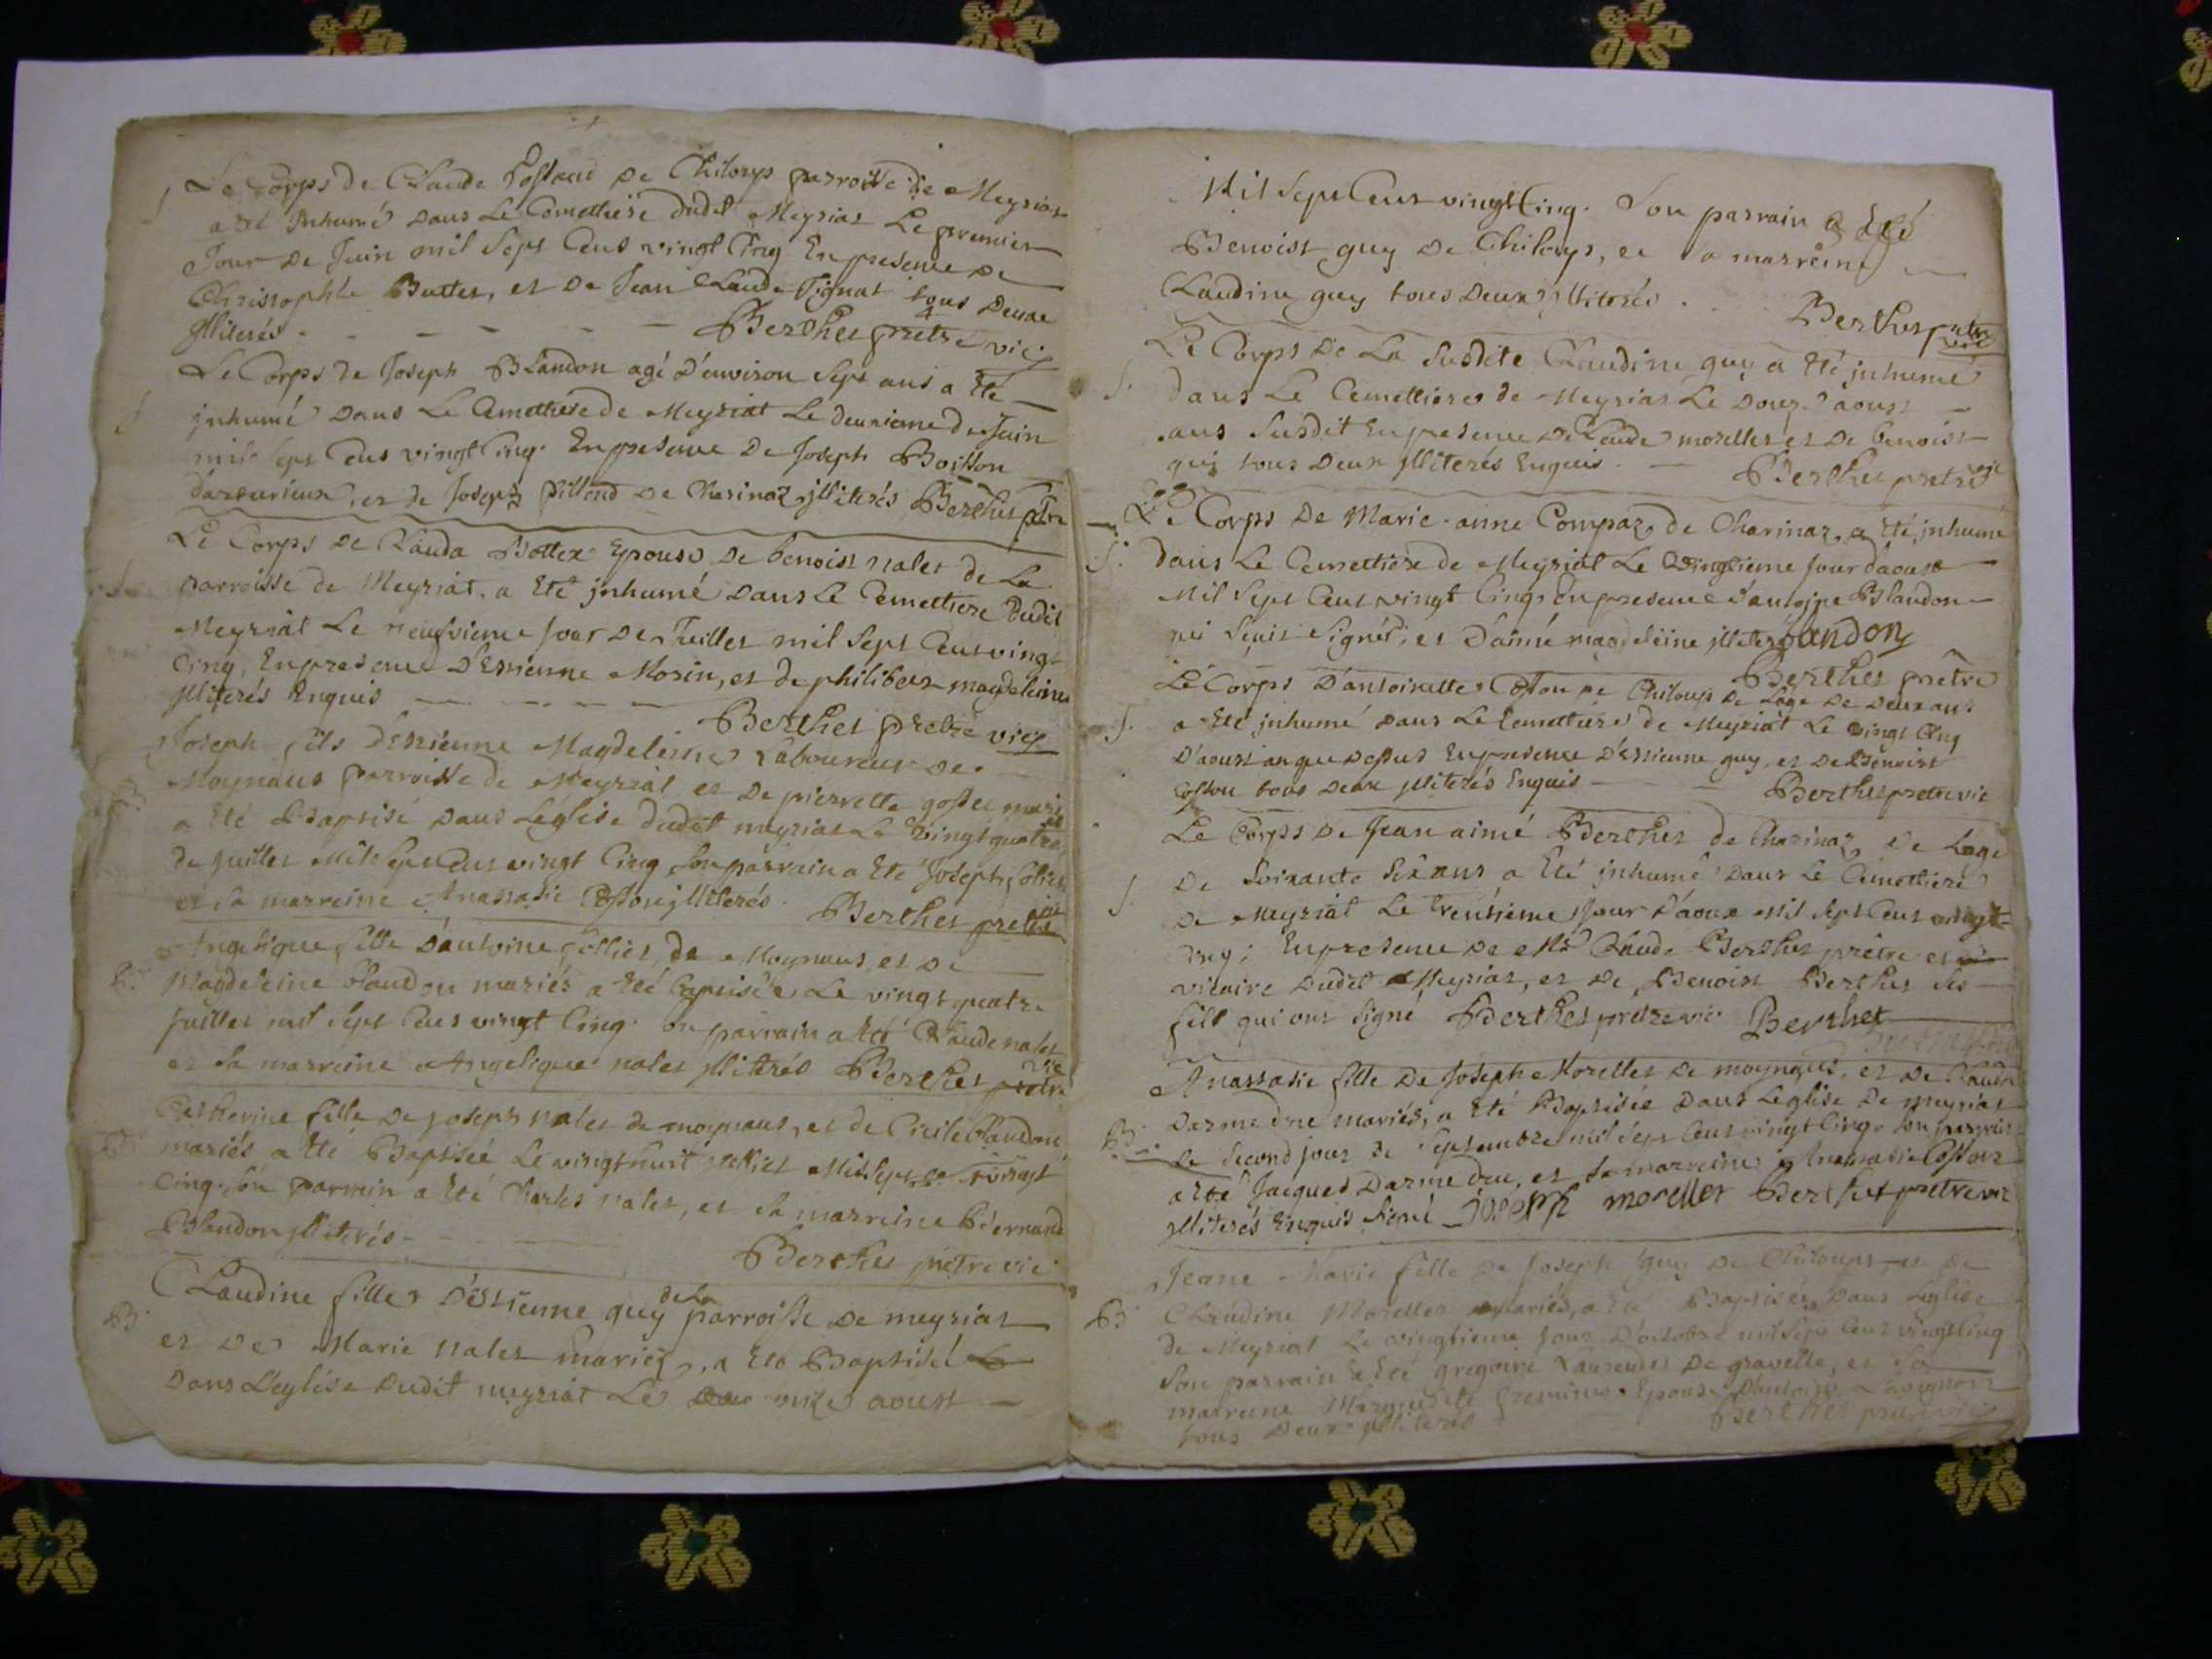 Le Corps de Claude Costaud de Chiloup parroisse de Meyriat
a eté Inhumé dans Le Cemettiere dudit Meyriat Le premier
Jour de Juin mil sept Cent vingt Cinq En presence de
Christophle Buttet, et de Jean Claude Tignat tous Deux
jlliterés. Berthet pretre vic
Le Corps de Joseph Blandon agé d'environ sept ans a eté
jnhumé dans Le Cemettiere de Meyriat Le deuxieme de Juin
mil sept Cens vingt Cinq. En presence De Joseph Boisson
et de Joseph de Charinaz jlliterés Berthet ptre
Le Corps de Clauda Bottex Epouse de benoist nalet de La
parroisse de Meyriat, a Eté jnhumé dans Le Cemettiere dudit
Meyriat Le neufvieme jour de Juillet mil sept Cent vingt
Cinq, En presence d'Estienne Morin, et de philibert magdeleine
jlliterés Enquis
Berthet pretre vic
Joseph fils d'Estienne Magdeleine Laboureur de
Moynans parroisse de Meyriat et de pierrette gosset mariés
B a Eté Baptisé dans Léglise dudit meyriat Le vingt quatre
de juillet mil sept Cent vingt Cinq son parrain a Eté Joseph
et sa marreine Anastasie Coston jlliterés. Berthet pretre vic
Angelique fille d'antoine de Moynans, et de
B. Magdeleine Blandon mariés a Eté baptisée Le vingt quatre
juillet mil sept Cent vingt Cinq. son parrain a Eté Claude nalet
et sa marreine Angelique nalet jlliterés Berthet pretre vic
Catherine fille de joseph nalet de moynans, et de Cicile Blandon
B mariés a Eté Baptisée Le vingt huit juillet Mil sept Ce vingt
Cinq. son parrain a Eté Charles nalet, et sa marreine Bernarde
Blandon jlliterés
Berthet pretre vic
Claudine fille d'éstienne guy de La parroisse de meyriat
B. et de Marie nalet mariéz, a Eté Baptisé
dans L'eglise dudit meyriat Le onze aoust
Mil sept Cent vingt Cinq. Son parrain a Eté
Benoist guy de Chiloup, et sa marreine
Claudine guy tous deux jlliterés.
Berthet pretre vic
Le Corps de La susdite Claudine guy a Eté jnhumé
S. dans Le Cemettiere de Meyriat Le douze aoust
ans susdit En presence de Claude morellet et de benoist
guy tous deux jlliterés Enquis. Berthet pretre vic
Le Corps de Marie-anne Compaz de Charinaz, a Eté jnhumé
S. dans Le Cemettiere de Meyriat Le vingtieme jour d'aoust
Mil sept Cent vingt Cinq. En presence d'antoine Blandon
et d'aimé magdeleine jlliteré blandon
Berthet pretre
Le Corps d'antoinette Coston de Chiloup de Lage de deux ans
S. a Eté jnhumé dans Le Cemettiere de Meyriat Le vingt Cinq
d'aoust an que dessus En presence d'Estienne guy, et de Benoist
Coston tous deux jlliterés Enquis Berthet pretre vic
Le Corps de Jean aimé Berthet de Charinaz, de Lage
S. de soixante six ans a Eté jnhumé dans Le Cemettiere
de Meyriat Le trentieme jour d'aoust mil sept Cent vingt
Cinq; En presence de Mre Claude Berthet prêtre et
vicaire dudit Meyriat, et de Benoist Berthet ses
fils qui ont signé Berthet pretre vic Berthet
Anastasie fille de Joseph Morellet de moynans, et de Clauda
Darmedrue mariés, a Eté Baptisée dans Leglise de meyriat
B. Le second jour de septembre mil sept Cent vingt Cinq. son parrain
a Eté Jacques Darmedrue, et sa marreine Anastasie Coston
jlliterés Enquis signé joseph morellet Berthet pretre vic
Jeane Marie fille de Joseph guy de Chiloup, et de
B Claudine Morellet mariés, a Eté Baptisée dans Leglise
de Meyriat Le vingtieme jour d'octobre mil sept Cent vingt Cinq
Son parrain a Eté gregoire de gravelle, et sa
marreine Marguerite Epouse d'antoine
tous deux jlliterés Berthet pretre vic